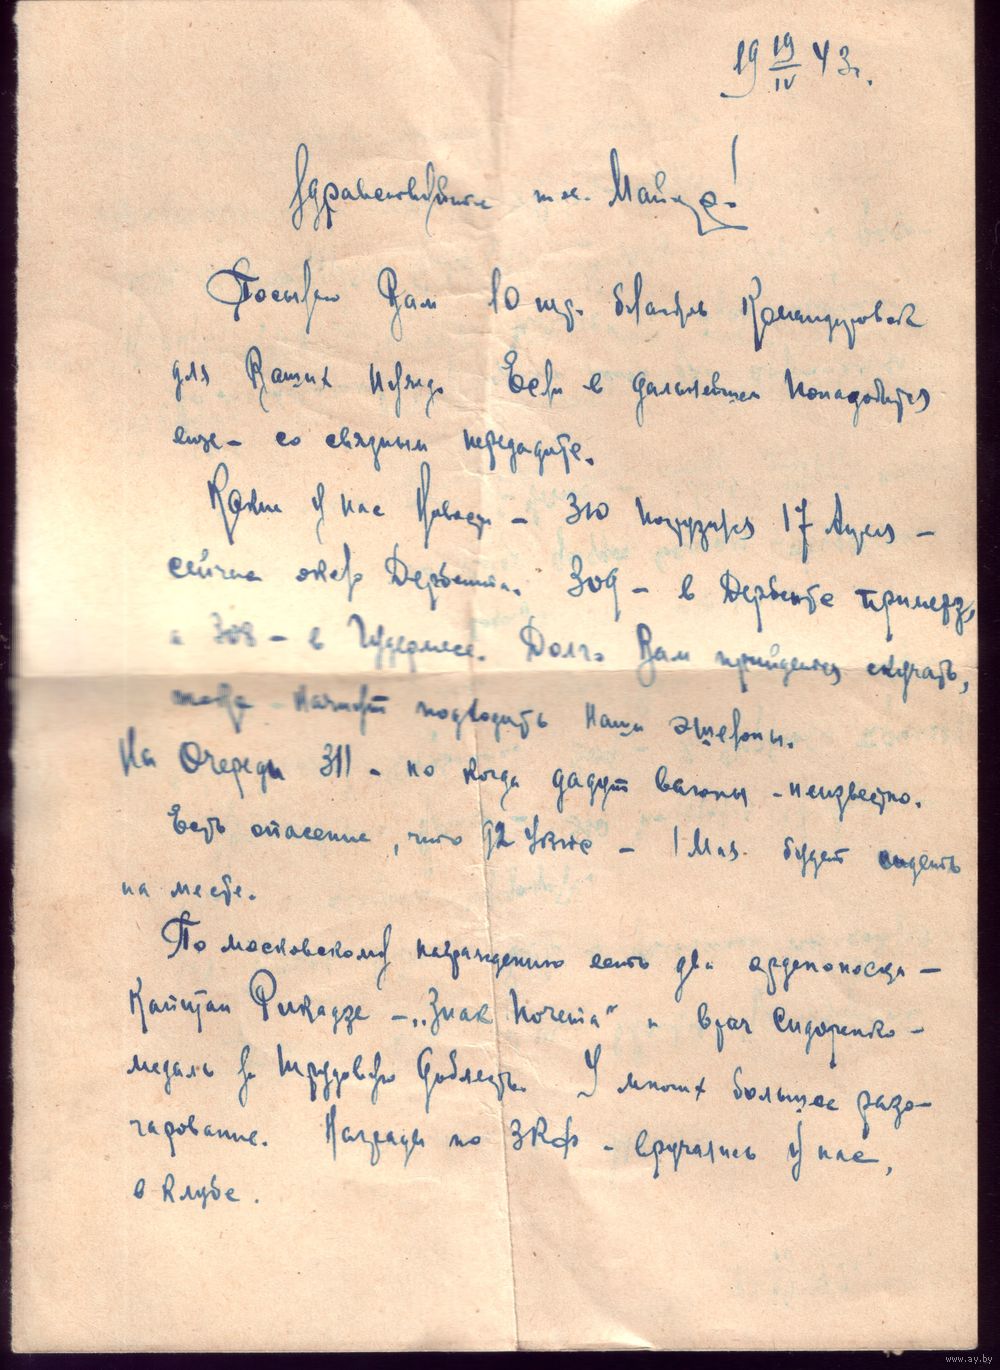 19 19/IV 43г.
Здравствуйте тов. Майзе!
Посылаю Вам 10 шт. бланков Командировок
для Ваших нужд. Если в дальнейшем понадобится
еще – со связным передадите.
Какие у нас Новости – 310 погрузился 17 Апреля –
сейчас около Дербента. 309 – в Дербенте примерз,
а 308 – в Гудермесе. Долго Вам прийдется скучать,
пока начнут подходить наши эшелоны.
На Очереди 311 – но когда дадут вагоны – неизвестно.
Есть опасение, что 92 – 1 Мая будет сидеть
на месте.
По московскому награждению есть два орденоносца –
Капитан Рикадзе – „Знак Почета" и врач Сидоренко –
медаль за Трудовую Доблесть. У многих большое разо-
чарование. Награды по ЗКФ – вручались у нас,
в клубе.
www.ay.by